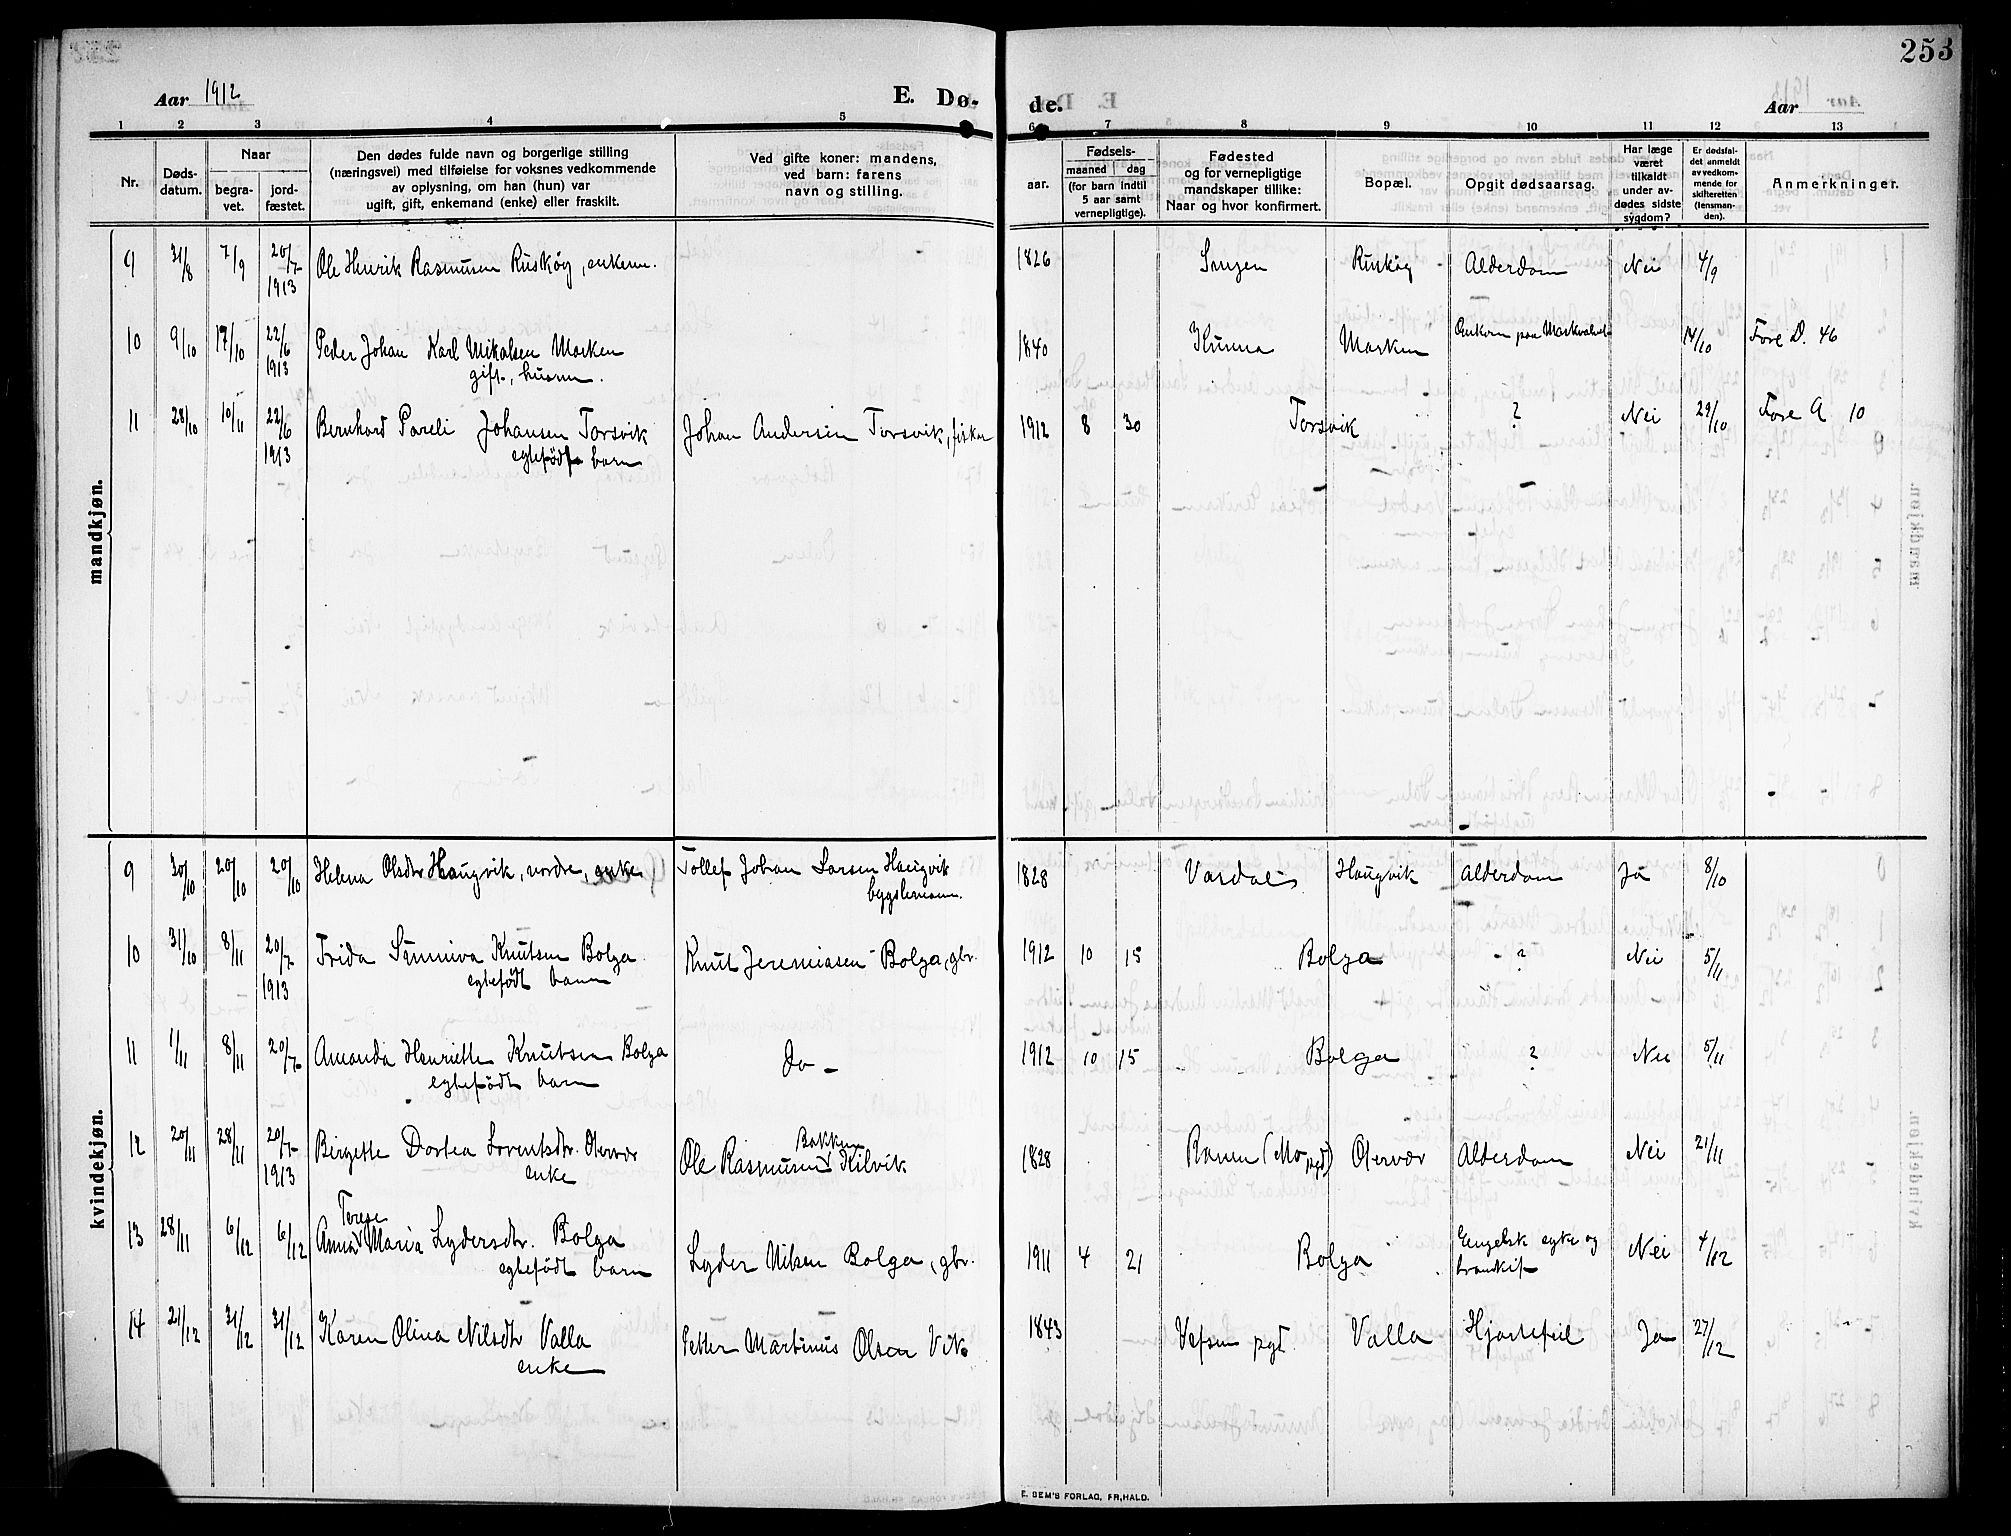 253
Aar 1912
E. Dø-
de.
Aar
1 2 3 4 5 6 7 8 9 10 11 12 13
Nr.
Døds-
datum.
Naar
begra-
vet.
jord-
fæstet.
Den dødes fulde navn og borgerlige stilling
(næringsvei) med tilføielse for voksnes vedkommende
av oplysning, om han (hun) var
ugift, gift, enkemand (enke) eller fraskilt.
Ved gifte koner: mandens,
ved barn: farens
navn og stilling.
Fødsels-
aar.
maaned dag
(for barn indtil
5 aar samt
vernepligtige).
Fødested
og for vernepligtige
mandskaper tillike:
Naar og hvor konfirmert.
Bopæl.
Opgit dødsaarsag.
Har læge
været
tilkaldt
under av-
dødes sidste
sygdom?
Er dødsfal-
det anmeldt
av vedkom-
mende for
skifteretten
(lensman-
den).
Anmerkninger.
mandkjøn.
9 31/8 7/9 20/7 1913 Ole Henrik Rasmusen Ruskøg, enkem. 1826 Ruskøg Alderdom Nei 4/9
10 9/10 17/10 22/6 1913 Peder Johan Karl Mikalsen Masken 1840 Kunna Masken 14/10 Fore D. 46
gift, husm.
11 28/10 10/11 22/6 1913 Bernhard Pareli Johansen Torsvik Johan Andersen Torsvik, fisker 1912 8 30 Torsvik ? Nei 29/10 Fore A 10
egtefødt barn
kvindekjøn.
9 30/10 20/10 20/10 Helena Olsdtr Haugvik, nordre, enke Tollef Johan Larsen Haugvik 1828 Vasdal Haugvik Alderdom Ja 8/10
bygslemann.
10 31/10 8/11 20/7 1913 Frida Sunniva Knutsen Bolga Knut Jeremiasen Bolga, gbr. 1912 10 15 Bolga ? Nei 5/11
egtefødt barn
11 1/11 8/11 20/7 Amanda Henriette Knutsen Bolga Do - 1912 10 15 Bolga ? Nei 5/11
egtefødt barn
12 20/11 28/11 20/7 1913 Birgette Dortea Lorentsdtr. Otervær Ole Rasmusen Bakken Kilvik 1828 Ranen (Mo pgd) Otervær Alderdom Nei 21/11
enke
13 28/11 6/12 6/12 Anna Terese Maria Lydersdtr. Bolga Lyder Nilsen Bolga, gbr. 1911 4 21 Bolga Engelsk syke og Nei 4/12
egtefødt barn
14 21/12 31/12 31/12 Karen Olina Nilsdtr Valla Petter Martinus Olsen Vik. 1843 Vefsen pgd. Valla Hjertefeil Ja 27/12
enke
E. SEM'S FORLAG, FR,HALD.